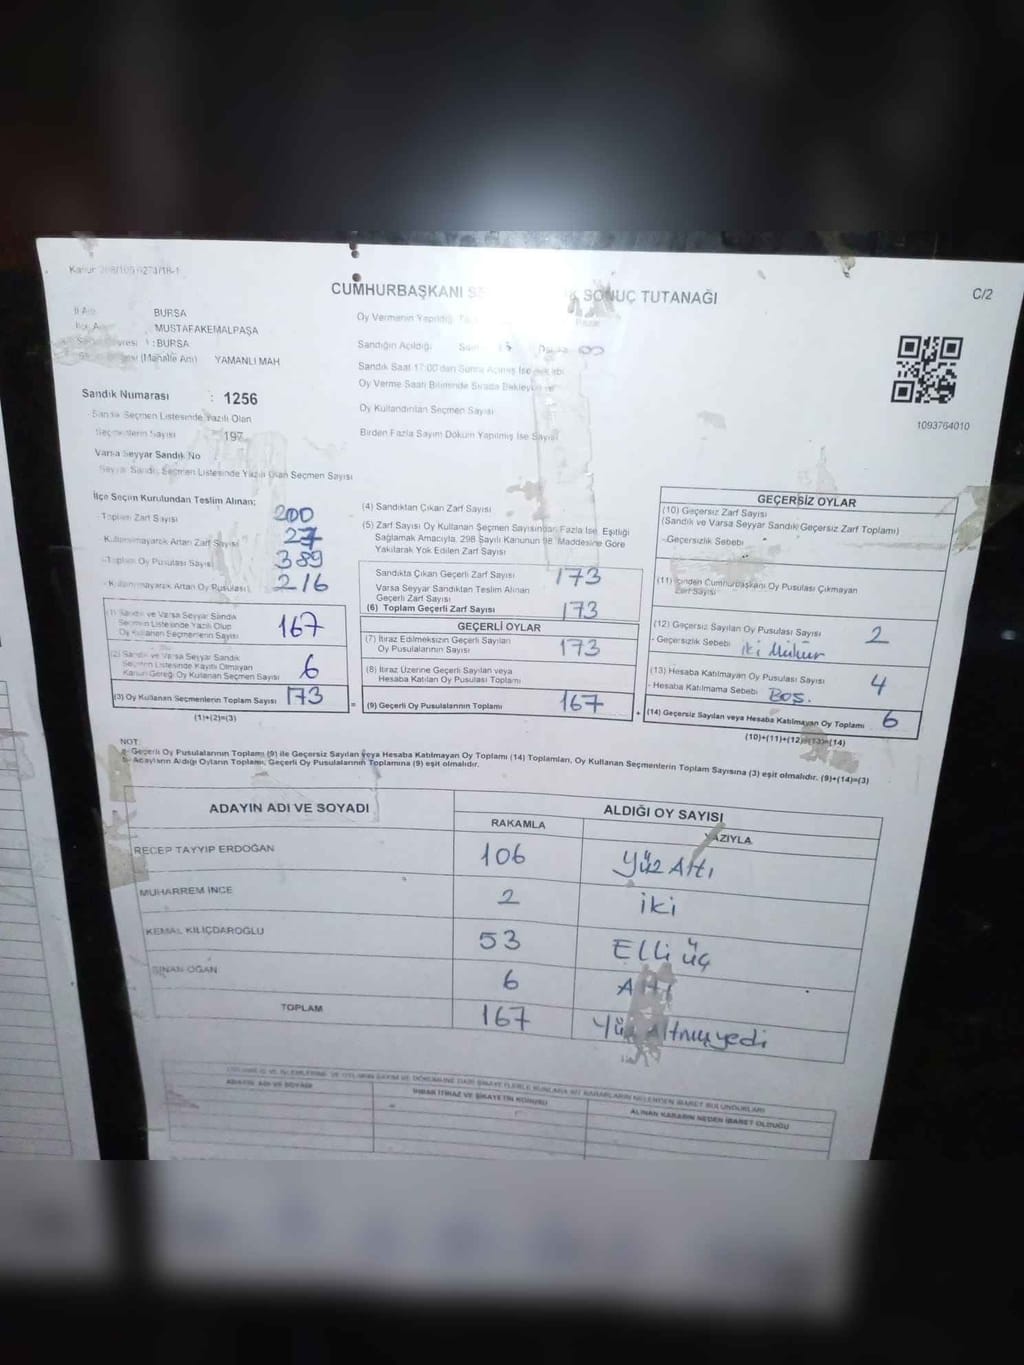 CUMHURBAŞKANI
SONUÇ TUTANAĞI
C/2
BURSA
MUSTAFAKEMALPAŞA
: BURSA
(Mahalle Adı) YAMANLI MAH
Oy Vermenin Yapıldığı
Pazar
Sandığın Açıldığı
Sandık Saat 17:00'dan Sonra Açılmış İse
Oy Verme Saati Bitiminde Sırada Bekleyip
Oy Kullandırılan Seçmen Sayısı
Birden Fazla Sayım Döküm Yapılmış İse Sayısı
1093764010
Sandık Numarası : 1256
Sandık Seçmen Listesinde Yazılı Olan
Seçmenlerin Sayısı 197
Varsa Seyyar Sandık No
Seyyar Sandık Seçmen Listesinde Yazılı Olan Seçmen Sayısı
İlçe Seçim Kurulundan Teslim Alınan;
- Toplam Zarf Sayısı 200
- Kullanılmayarak Artan Zarf Sayısı 27
- Toplam Oy Pusulası Sayısı 389
- Kullanılmayarak Artan Oy Pusulası 216
(1) Sandık ve Varsa Seyyar Sandık
Seçmen Listesinde Yazılı Olup
Oy Kullanan Seçmenlerin Sayısı 167
(2) Sandık ve Varsa Seyyar Sandık
Seçmen Listesinde Kayıtlı Olmayan
Kanun Gereği Oy Kullanan Seçmen Sayısı 6
(3) Oy Kullanan Seçmenlerin Toplam Sayısı 173
(1)+(2)=(3)
(4) Sandıktan Çıkan Zarf Sayısı
(5) Zarf Sayısı Oy Kullanan Seçmen Sayısından Fazla İse, Eşitliği
Sağlamak Amacıyla, 298 Sayılı Kanunun 98. Maddesine Göre
Yakılarak Yok Edilen Zarf Sayısı
Sandıkta Çıkan Geçerli Zarf Sayısı 173
Varsa Seyyar Sandıktan Teslim Alınan
Geçerli Zarf Sayısı
(6) Toplam Geçerli Zarf Sayısı 173
GEÇERLİ OYLAR
(7) İtiraz Edilmeksizin Geçerli Sayılan
Oy Pusulalarının Sayısı 173
(8) İtiraz Üzerine Geçerli Sayılan veya
Hesaba Katılan Oy Pusulası Toplamı
= (9) Geçerli Oy Pusulalarının Toplamı 167
GEÇERSİZ OYLAR
(10) Geçersiz Zarf Sayısı
(Sandık ve Varsa Seyyar Sandık Geçersiz Zarf Toplamı)
- Geçersizlik Sebebi
(11) İçinden Cumhurbaşkanı Oy Pusulası Çıkmayan
Zarf Sayısı
(12) Geçersiz Sayılan Oy Pusulası Sayısı 2
- Geçersizlik Sebebi iki Mühür
(13) Hesaba Katılmayan Oy Pusulası Sayısı 4
- Hesaba Katılmama Sebebi Boş.
+ (14) Geçersiz Sayılan veya Hesaba Katılmayan Oy Toplamı 6
(10)+(11)+(12)+(13)=(14)
NOT:
a- Geçerli Oy Pusulalarının Toplamı (9) ile Geçersiz Sayılan veya Hesaba Katılmayan Oy Toplamı (14) Toplamları, Oy Kullanan Seçmenlerin Toplam Sayısına (3) eşit olmalıdır. (9)+(14)=(3)
b- Adayların Aldığı Oyların Toplamı, Geçerli Oy Pusulalarının Toplamına (9) eşit olmalıdır.
ADAYIN ADI VE SOYADI
ALDIĞI OY SAYISI
RAKAMLA YAZIYLA
RECEP TAYYİP ERDOĞAN 106 Yüz Altı
MUHARREM İNCE 2 iki
KEMAL KILIÇDAROĞLU 53 Elli üç
SİNAN OĞAN 6 Altı
TOPLAM 167 Yüz Altmışyedi
ADAYIN ADI VE SOYADI
İHBAR İTİRAZ VE ŞİKAYETİN KONUSU
ALINAN KARARIN NEDEN İBARET OLDUĞU